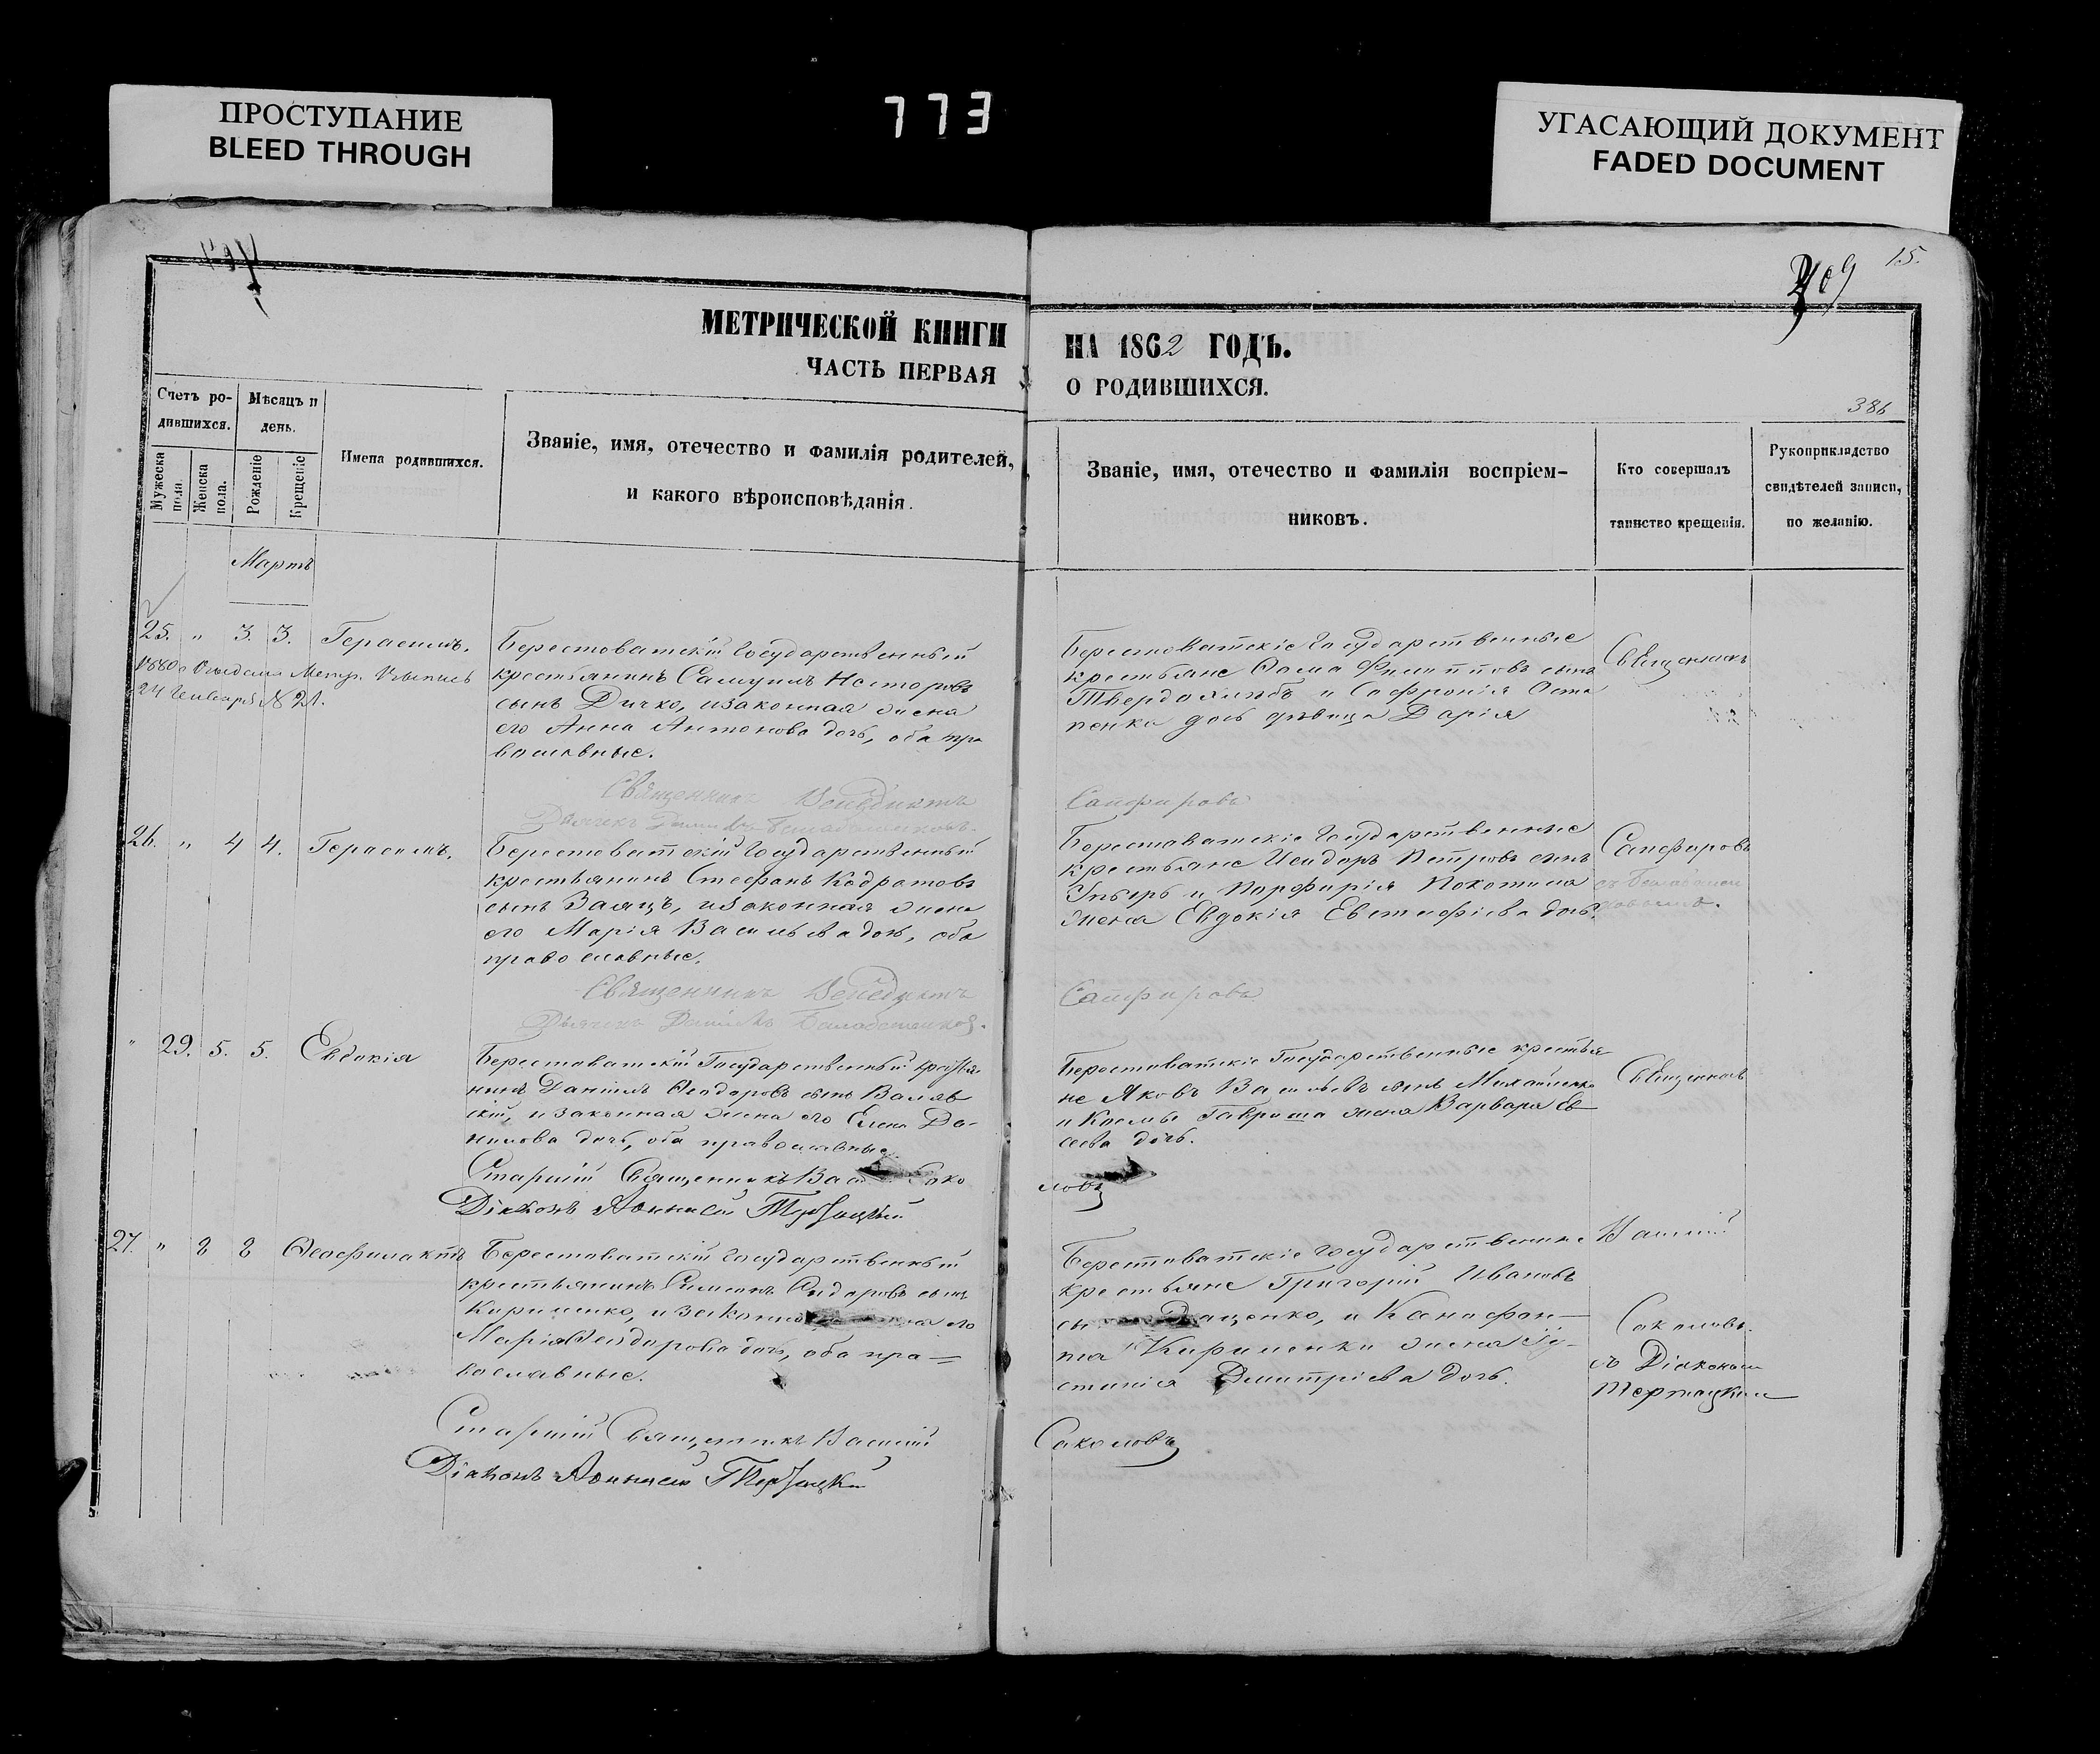 ПРОСТУПАНИЕ
BLEED THROUGH
773
УГАСАЮЩИЙ ДОКУМЕНТ
FADED DOCUMENT
209
15.
МЕТРИЧЕСКОЙ КНИГИ
ЧАСТЬ ПЕРВАЯ
НА 1862 ГОДЪ.
О РОДИВШИХСЯ.
386
Счетъ ро-
дившихся.
Мѣсяцъ и
день.
Мужеска
пола.
Женска
пола.
Рожденіе
Крещеніе
Имена родившихся.
Званіе, имя, отечество и фамилія родителей,
и какого вѣроисповѣданія.
Званіе, имя, отечество и фамилія воспріем-
никовъ.
Кто совершалъ
таинство крещенія.
Рукоприкладство
свидѣтелей записи,
по желанію.
Мартъ
25. " 3. 3. Герасимъ.
24 Января № 21.
Берестоватскій Государственный
крестьянинъ Самуилъ Несторовъ
сынъ Дичко, и законная жена
его Анна Антонова дочь, оба пра
вославные.
Священникъ Венедиктъ
Берестоватскіе Государственные
крестьяне Ѳома Филипповъ сынъ
Твердохлѣбъ и Софронія Оста
пенка дочь дѣвица Дарія
Сапфировъ
Священникъ
26. " 4 4. Герасимъ.
Берестоватскій Государственный
крестьянинъ Стефанъ Кодратовъ
сынъ Заяцъ, и законная жена
его Марія Васильева дочь, оба
православные.
Священникъ Венедиктъ
Берестоватскіе Государственные
крестьяне Исидоръ Петровъ сынъ
и Порфирія Покотила
жена Евдокія Евстафіева дочь.
Сапфировъ
Сапфировъ
" 29. 5. 5. Евдокія
Берестоватскій Государственный крестья-
нинъ Даніилъ Ѳеодоровъ сынъ Валяв
скій, и законная жена его Елена Да-
нилова дочь, оба православные.
Старшій Священникъ Вас Соко
Діаконъ Аѳанасій Тертацкій
Берестоватскіе Государственные крестья
не Яковъ Васильевъ сынъ Михайленко
и Космы Гавриша жена Варвара Ев-
сеева дочь.
ловъ
Священникъ
27. " 8 8 Ѳеофилактъ
Берестоватскій Государственный
крестьянинъ Симеонъ Сидоровъ сынъ
Кириленко, и законна на его
Марія Ѳеодорова дочь, оба пра-
вославные.
Старшій Священникъ Василій
Діаконъ Аѳанасій Тертацкій
Берестоватскіе Государственные
крестьяне Григорій Ивановъ
сы аценко, и Ксенофон-
та Кириленки жена Іу-
стинія Димитріева дочь.
Соколовъ
Василій
Соколовъ.
съ Діакономъ
Тертацкимъ